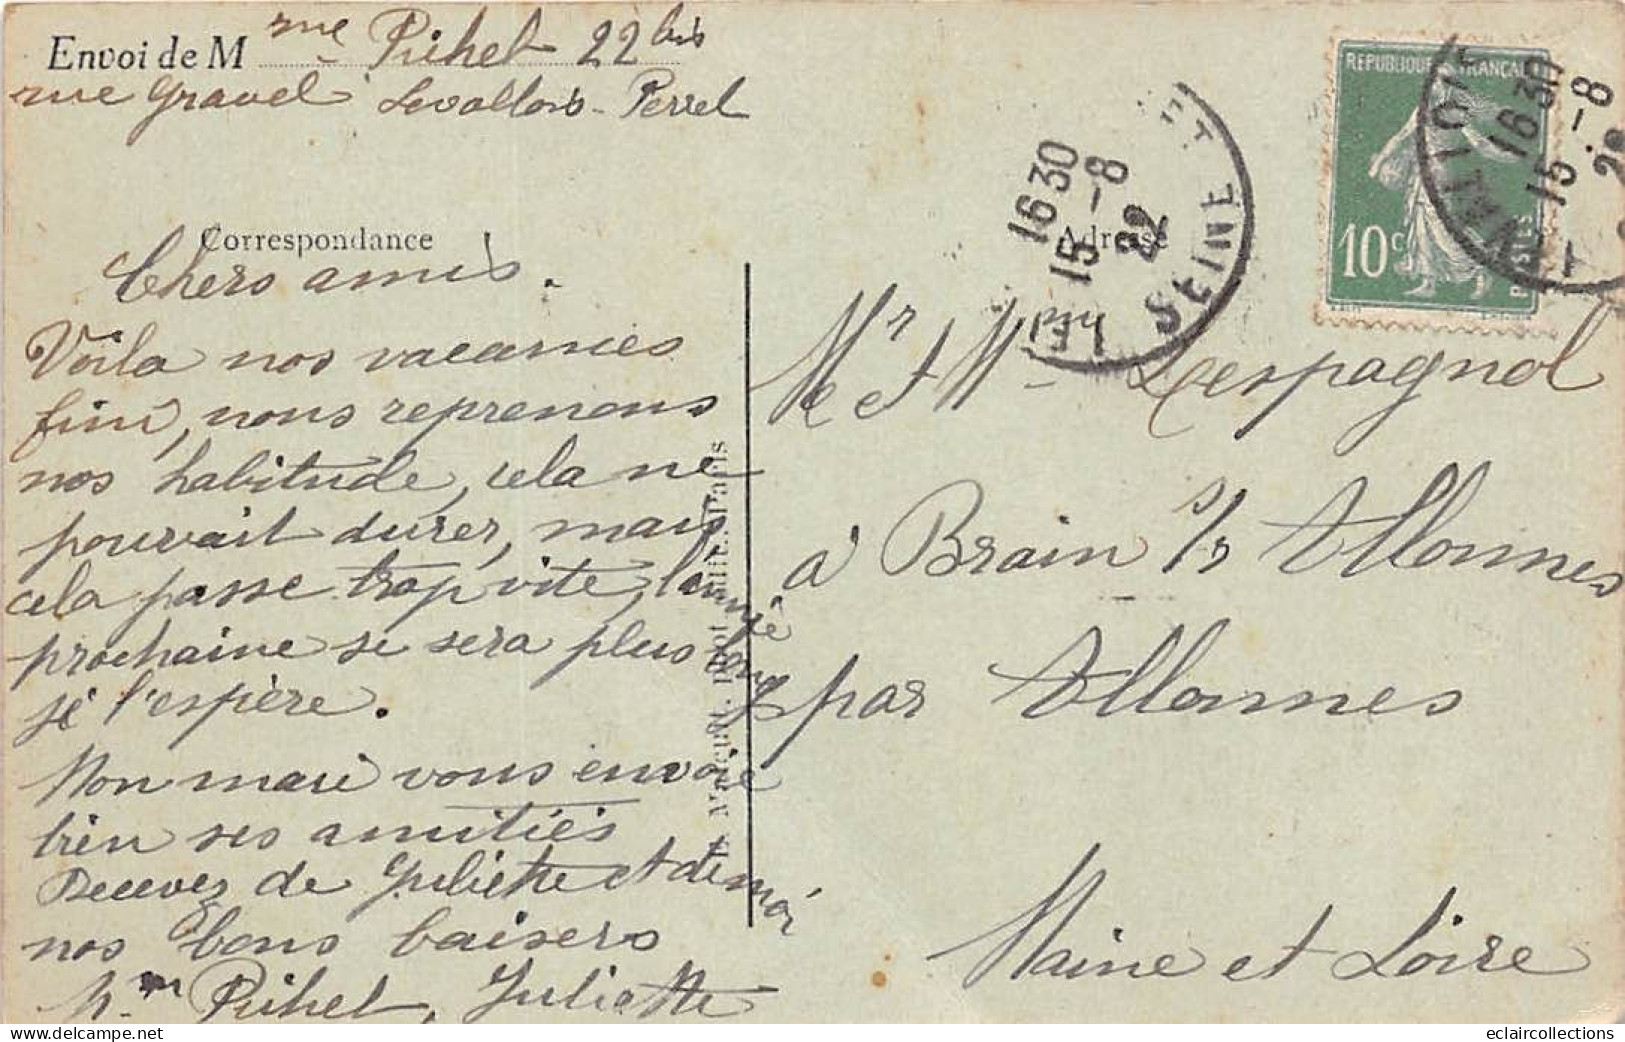 Envoi de Mme Pichet 22 bis
rue Gravel Levallois-Perret
Correspondance
Chers amis.
Voila nos vacances
fini, nous reprenons
nos habitude, cela ne
pouvait durer, mais
cela passe trop vite, l'année
prochaine se sera plus long
je l'espère.
Mon mari vous envoie
bien ses amitiés
Recevez de Juliette et de moi
nos bons baisers
Mme Pichet, Juliette
Adresse
Mr et Mme Lespagnol
à Brain s/r Allonnes
par Allonnes
Maine et Loire
REPUBLIQUE FRANCAISE
10c
POSTES
16 30
15 - 8
22
SEINE
LEVALLOIS
16 30
15 - 8
22
eclaircollections